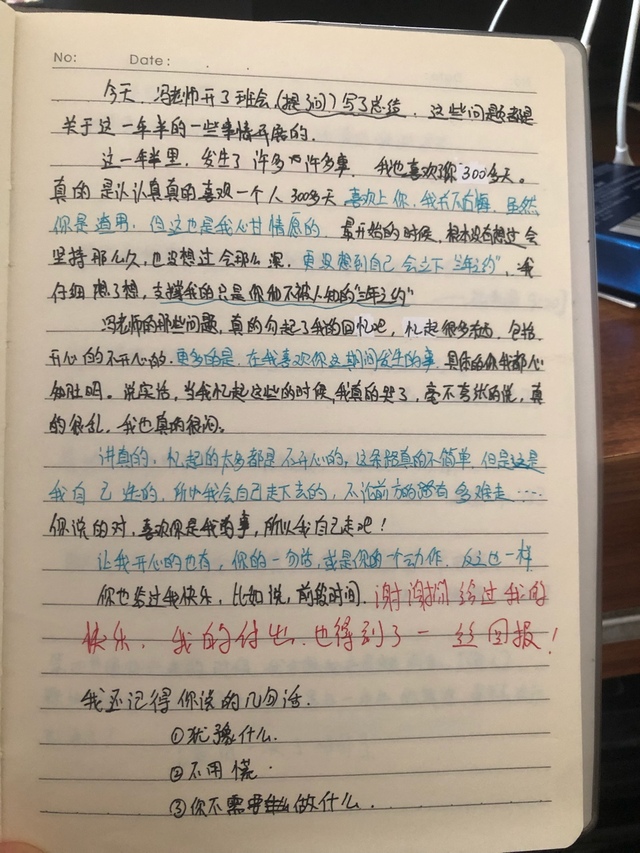 No: Date:
今天,冯老师开了班会(提了问)写了总结,这些问题都是
关于这一年半的一些事情开展的.
这一年半里,发生了许多许多事,我也喜欢了你300多天。
真的是认认真真的喜欢一个人300多天 喜欢上你,我我不后悔,虽然
你是渣男,但这也是我心甘情愿的,最开始的时候,根本没有想过会
坚持那么久,也没想过会那么深,更没想到自己会立下"三年之约",我
仔细想了想,支撑我的只是你他不被人知的"三年之约"
冯老师的那些问题,真的勾起了我的回忆吧,忆起很多东西,包括
开心的不开心的.更多的是,在我喜欢你这期间发生的事,具体的你我都心
知肚明。说实话,当我忆起这些的时候,我真的哭了,毫不夸张的说,真
的很乱,我也真的很闷。
讲真的,忆起的大多都是不开心的,这条路真的不简单,但是这是
我自己选的,所以我会自己走下去的,不论前方的路有多难走……
你说的对,喜欢你是我的事,所以我自己走吧!
让我开心的也有,你的一句话,或是你的一个动作,反之也一样
你也给过我快乐,比如说,前段时间.谢谢你给过我的
快乐,我的付出,也得到了一丝回报!
我还记得你说的几句话.
①犹豫什么.
②不用慌.
③你不需要做什么.